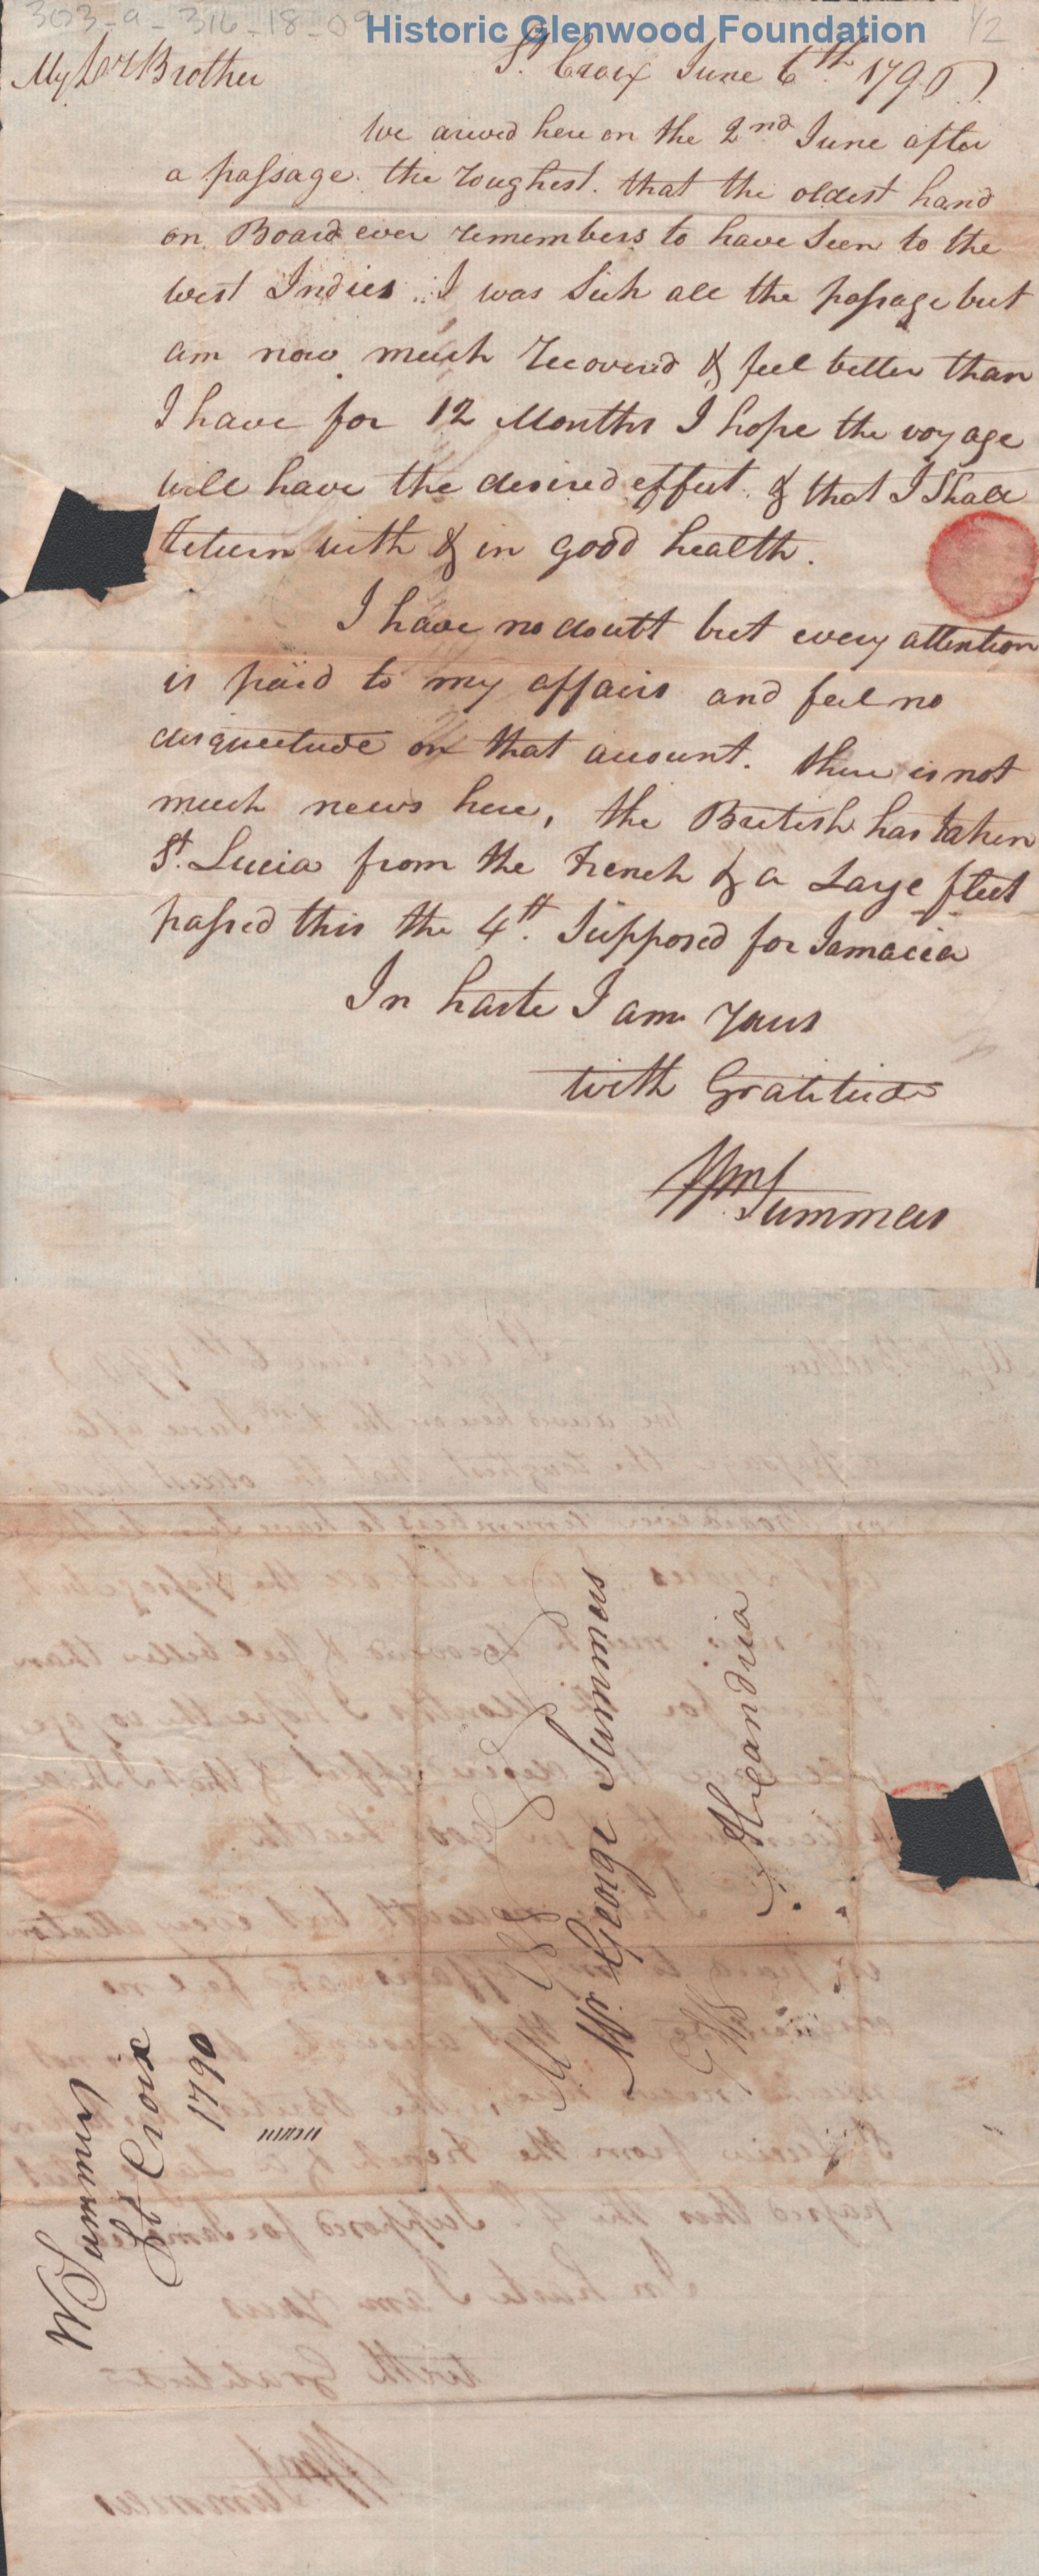 303-9-316-18-09
Historic Glenwood Foundation
1/2
My Dear Brother
St. Croix June 6th 1790
We arived here on the 2nd June after
a passage the roughest that the oldest hand
on Board ever remembers to have Seen to the
west Indies. I was Sick all the passage but
am now much recovered & feel better than
I have for 12 Months I hope the voyage
will have the desired effect & that I Shall
Return with & in good health.
I have no doubt but every attention
is paid to my affairs and feel no
disquietude on that account. there is not
much news here, the British has taken
St. Lucia from the French & a Large fleet
passed this the 4th. Supposed for Jamacia
In haste I am yours
with Gratitude
Wm Summers
Mr. George Summers
Alexandria
W Summers
St Croix
1790